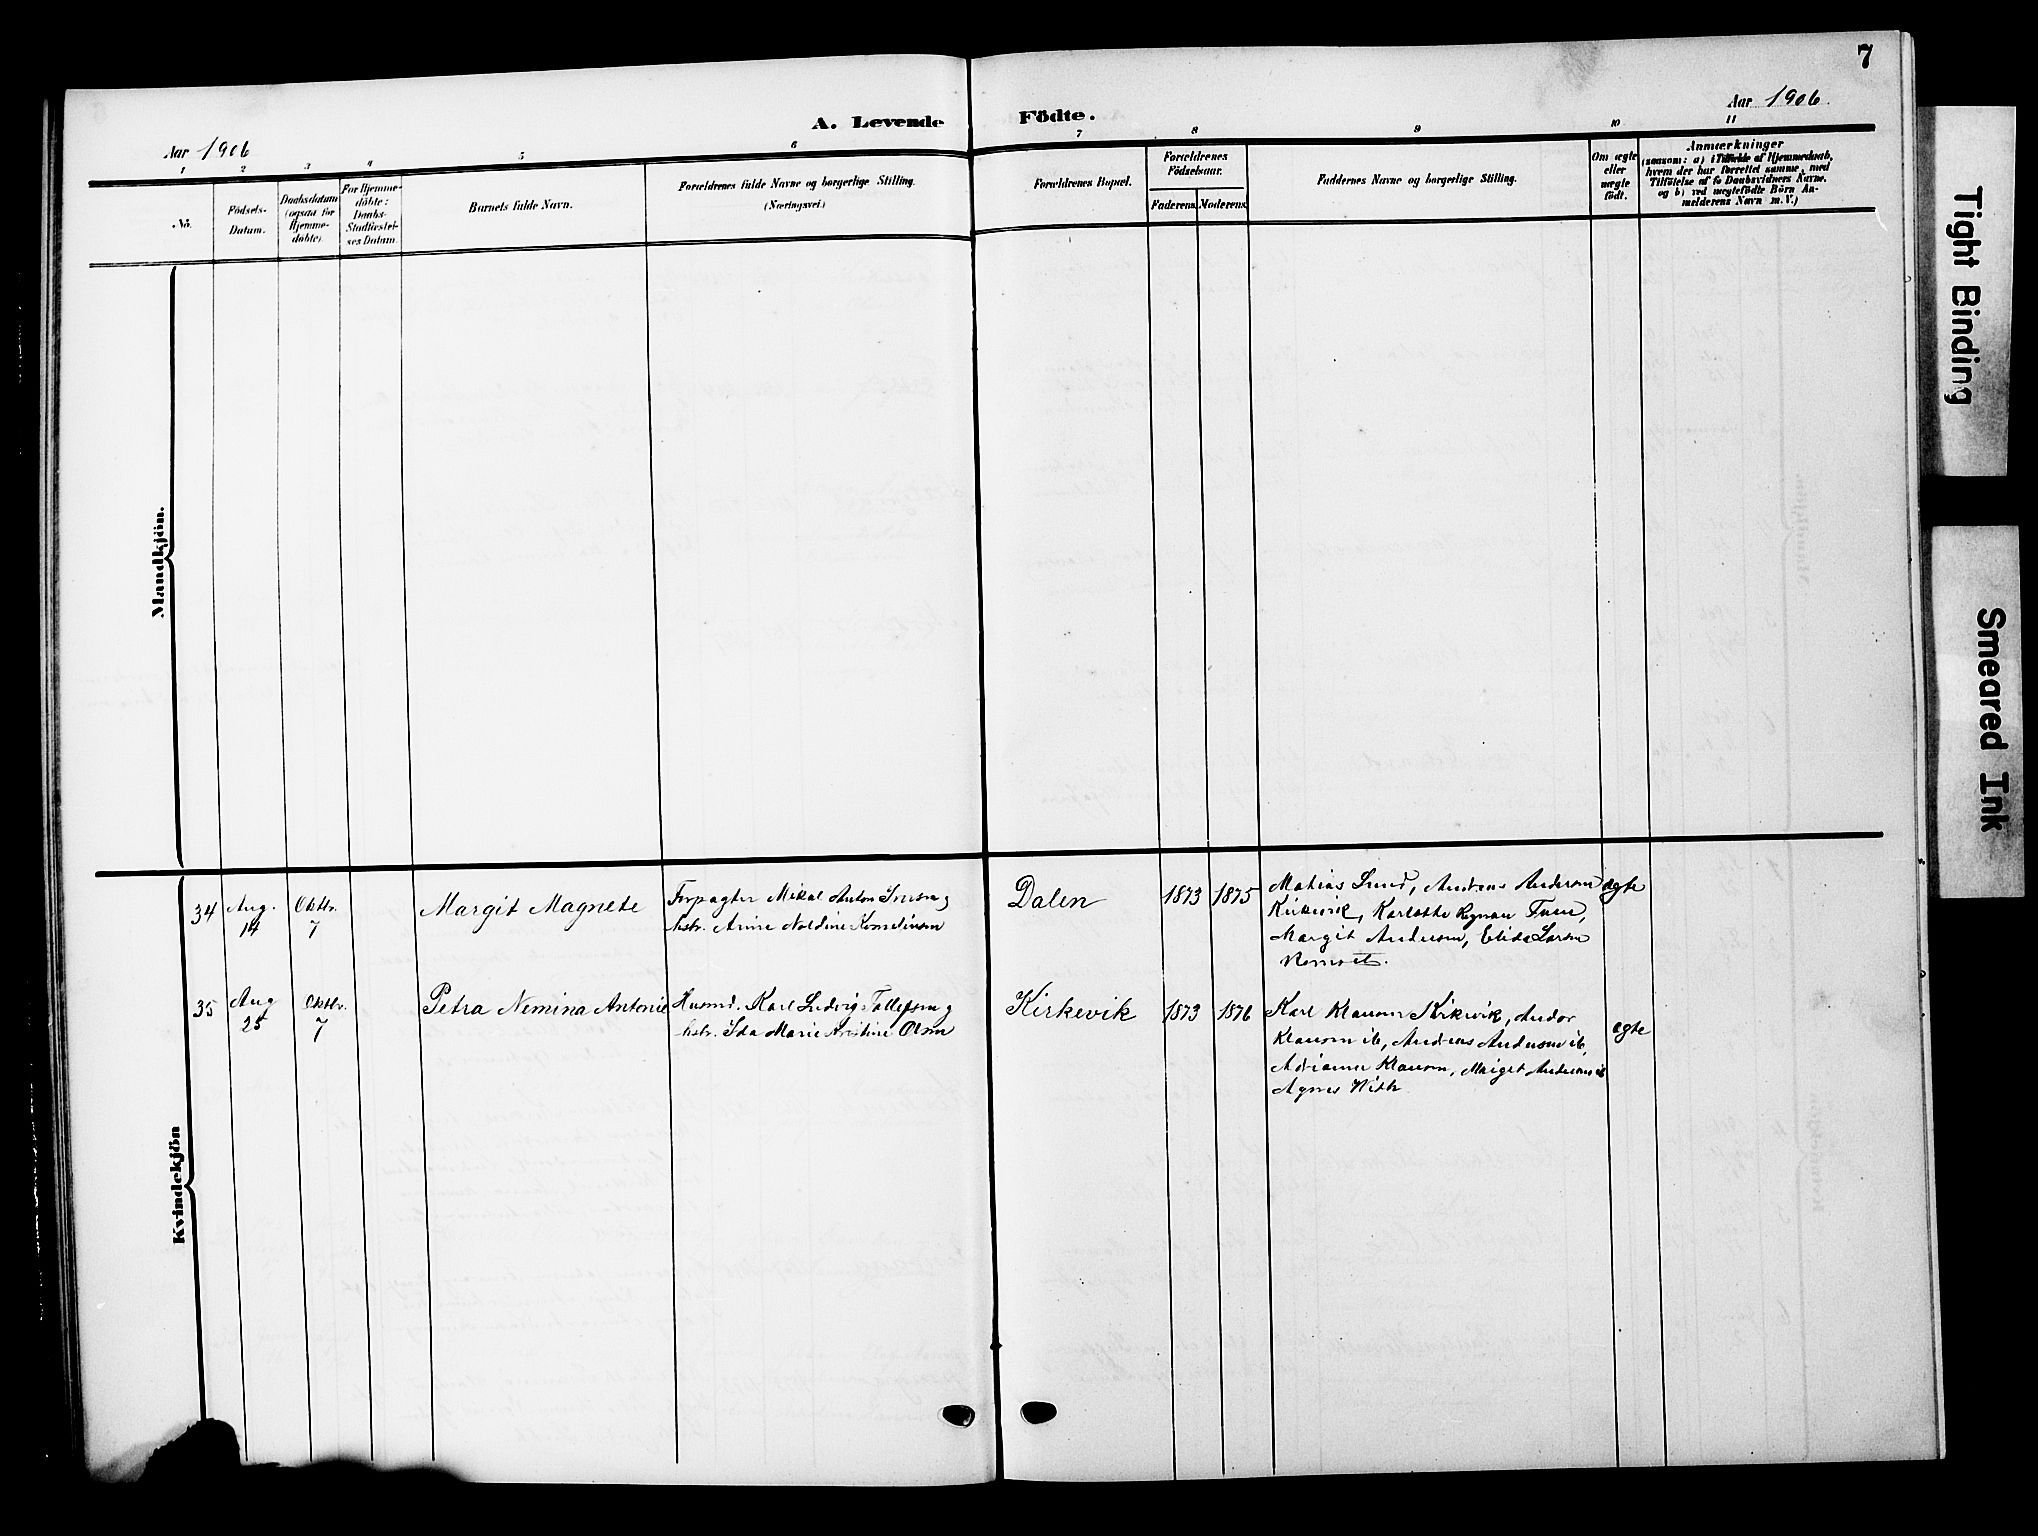 7
A. Levende Födte.
Aar 1906
Aar 1906.
1 2 3 4 5 6 7 8 9 10 11
No.
Födsels-
Datum.
Daabsdatum
(ogsaa for
Hjemme-
döbte)
For Hjemme-
döbte:
Daabs-
Stadfæstel-
ses Datum
Barnets fulde Navn.
Forældrenes fulde Navne og borgerlige Stilling.
(Næringsvei.)
Forældrenes Bopæl.
Forældrenes
Födselsaar.
Faderens. Moderens.
Faddernes Navne og borgerlige Stilling.
Om ægte
eller
uægte
födt.
Anmærkninger
(saasom: a) i Tilfælde af Hjemmedaab,
hvem der har forrettet samme, med
Tilföielse af to Daabsvidners Navne.
og b) ved uægtefödte Börn An-
melderens Navn m. V.)
Mandkjön.
Kvindekjön
34 Aug. 14 Oktbr. 7 Margit Magnete
Forpagter Mikal Anton
hstr. Anne
Dalen 1873 1875
Matias Lund, Andreas Andersen
Kirkevik, Karlotte
Margit Andersen, Elida Larsen
ægte
35 Aug 25 Oktbr. 7 Petra Nemina Antonie
Husmd. Karl Ludvig Tollefsen og
hstr. Ida Marie Kristine Olsen
Kirkevik 1873 1876
Karl Klausen Kirkevik, Andor
Klausen ib, Andreas Andersen ib,
Adrianne Klausen, Margit Andersen ib
Agnes With
ægte
Tight Binding
Smeared Ink